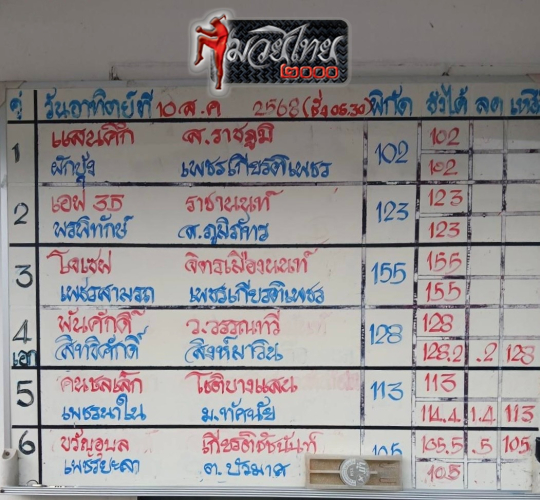 มวยไทย
๒๐๐๐
คู่ วันอาทิตย์ที่ 10 ส.ค 2568 (ชั่ง 05.30) พิกัด ชั่งได้ ลด เหลือ
1 แสนศึก ส.ราชภูมิ 102 102
ผักบุ้ง เพชรเกียรติเพชร 102
2 เอฟ 35 ราชานนท์ 123 123
พรพิทักษ์ ส.ภูมิภัทร 123
3 โจเซฟ จิตรเมืองนนท์ 155 155
เพชรสามรถ เพชรเกียรติเพชร 155
4 พันศักดิ์ ว.วรรณทวี 128 128
เอก สิทธิศักดิ์ สิงห์มาวิน 128.2 .2 128
5 คนชลเล็ก โชติบางแสน 113 113
เพชรนาใน ม.ทัศนัย 114.4 1.4 113
6 ขวัญอุบล เกียรติชัชนันท์ 105 105.5 .5 105
เพชรยะลา ต.ปรมาศ 105